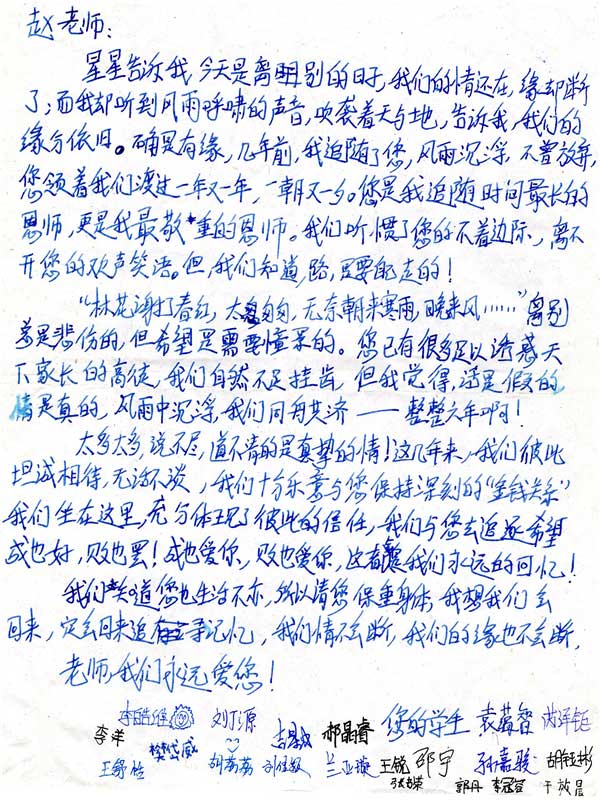 赵老师:
星星告诉我,今天是离别的日子,我们的情还在,缘却断
了;而我却听到风雨呼啸的声音,吹袭着天与地,告诉我,我们的
缘分依旧。确是有缘,几年前,我追随了您,风雨沉浮,不曾放弃,
您领着我们渡过一年又一年,一朝又一夕。您是我追随时间最长的
恩师,更是我最敬重的恩师。我们听惯了您的不着边际,离不
开您的欢声笑语。但,我们知道,路,是要自己走的!
“林花谢了春红,太匆匆,无奈朝来寒雨,晚来风……”离别
总是悲伤的,但希望是需要憧憬的。您已有很多足以诱惑天
下家长的高徒,我们自然不足挂齿,但我觉得,话是假的,
情是真的,风雨中沉浮,我们同舟共济——整整六年啊!
太多太多,说不尽,道不清的是真挚的情!这几年来,我们彼此
坦诚相待,无话不谈,我们十分乐意与您保持深刻的“金钱关系”
我们坐在这里,充分体现了彼此的信任,我们与您去追逐希望
成也好,败也罢!成也爱你,败也爱你,这都是我们永远的回忆!
我们知道您也生活不易,所以请您保重身体,我想我们会
回来,定会回来追寻记忆,我们情不会断,我们的缘也不会断,
老师,我们永远爱您!
李皓维 刘丁源 您的学生 袁蔼智 芮泽钜
李洋 樊岱威 胡荔荔 郝晶睿
王舒怡 刘佳敏 兰亚璇 王锐 邵宇 孙嘉骏
郭丹 李冠宣 于放晨